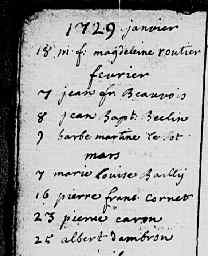 1729 janvier
18 m. f. magdeleine routier
fevrier
7 jean fr Beauvois
8 jean Bapt. Beclin
9 barbe martine le
mars
7 marie louise Bailly
16 pierre franc cornet
23 pierre caron
25 albert dambron